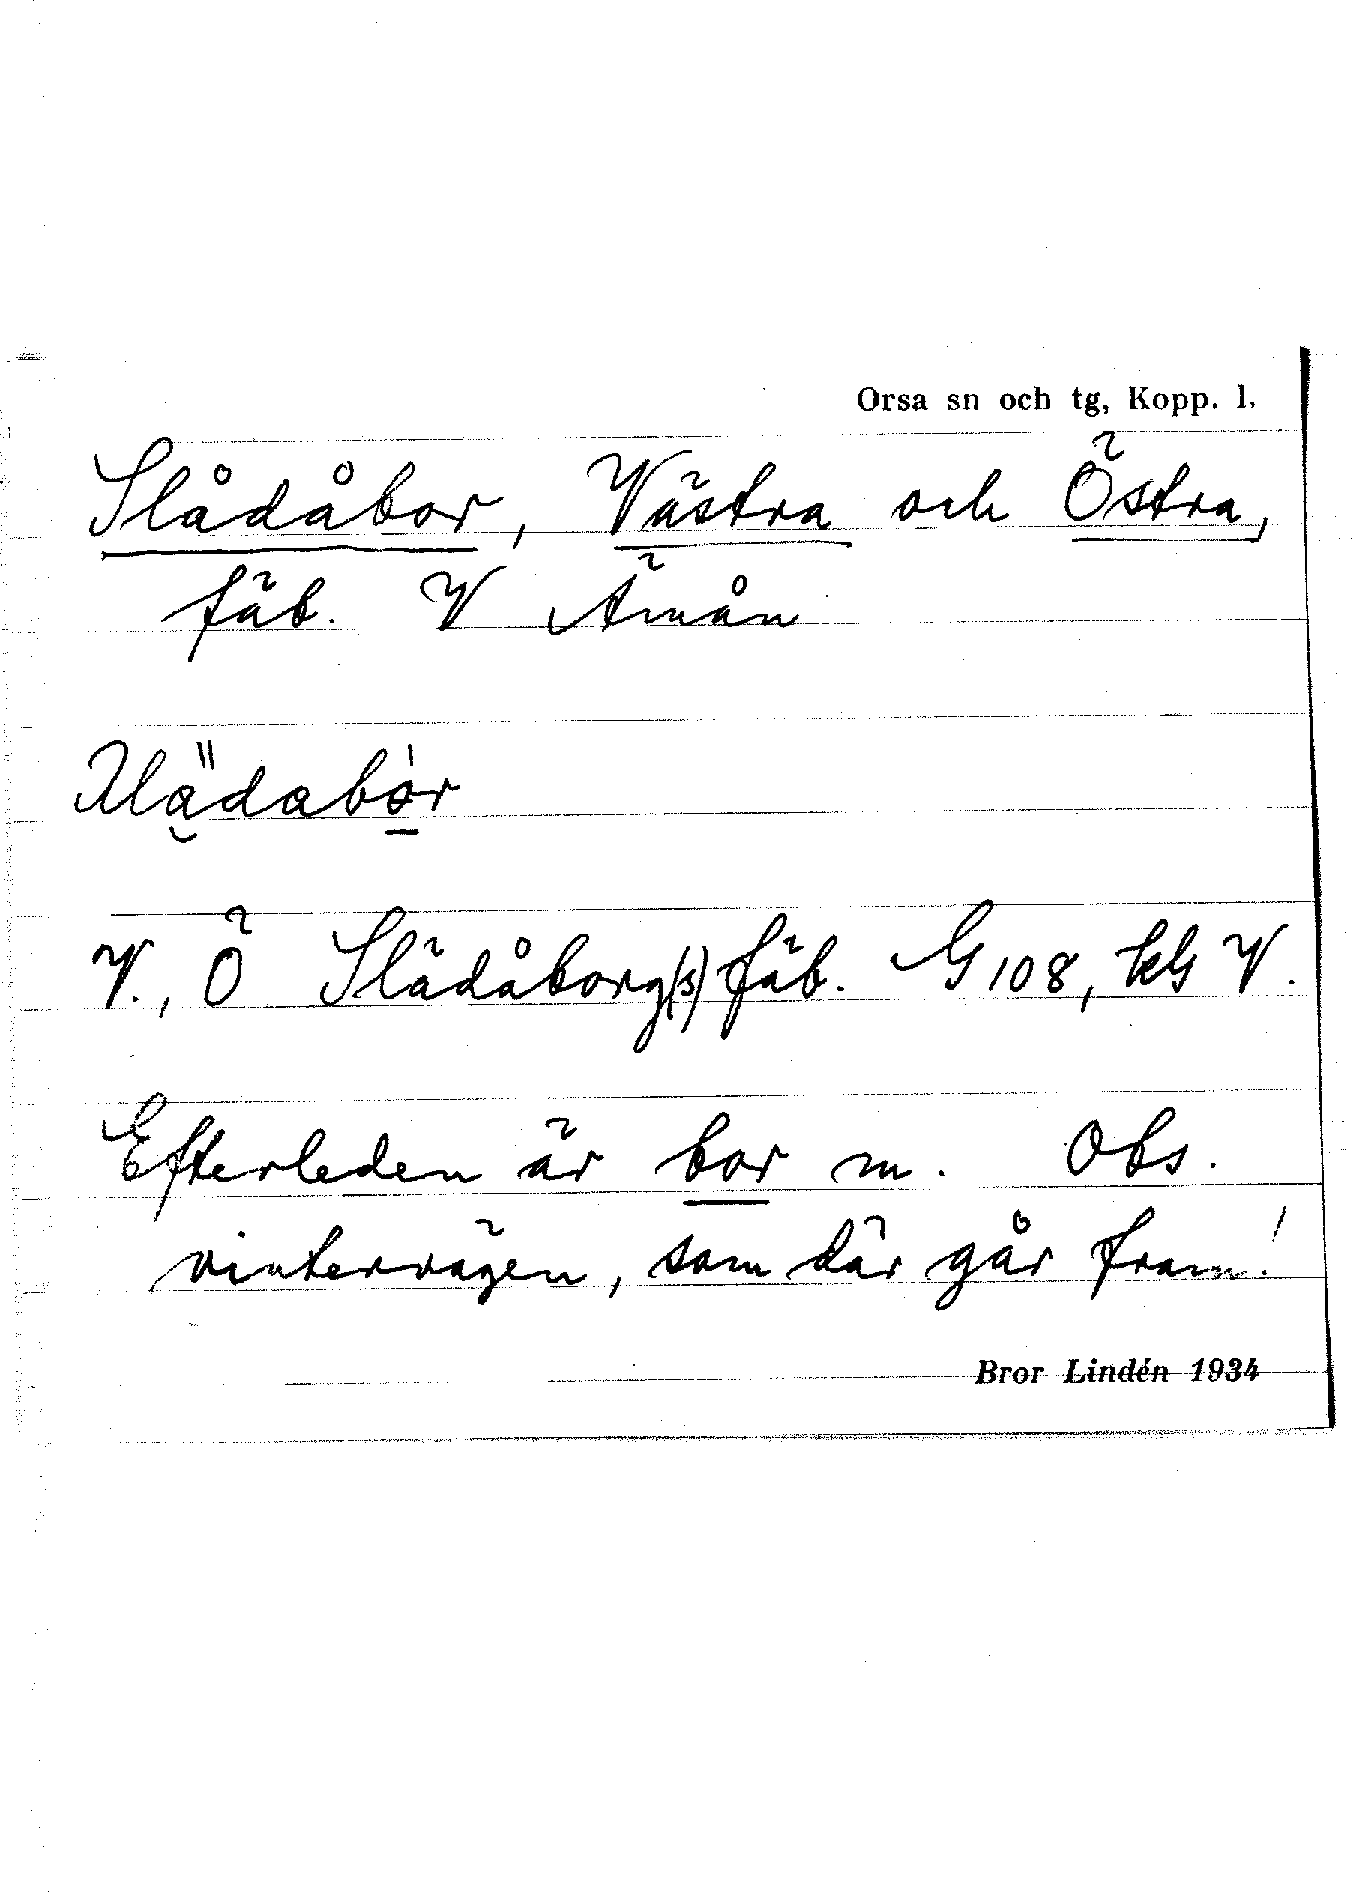 Orsa sn och tg, Kopp. l.
Slådåbor, Västra och Östra,
fäb. V Ämån
V., Ö Slädåborg(s) fäb. G 108, kG V.
Efterleden är bor m. Obs.
vintervägen, som där går fram!
Bror Lindén 1934